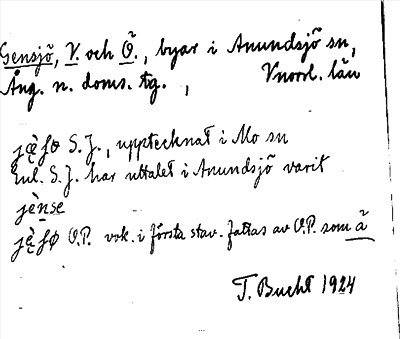 Gensjö, V. och Ö., byar i Anundsjö sn,
Ång. n. doms. tg., Vnorrl. län
S.J., upptecknat i Mo sn
Enl. S.J. har uttalet i Anundsjö varit
jènse
O.P. vok. i första stav. fattas av O.P. som ä
T. Bucht 1924